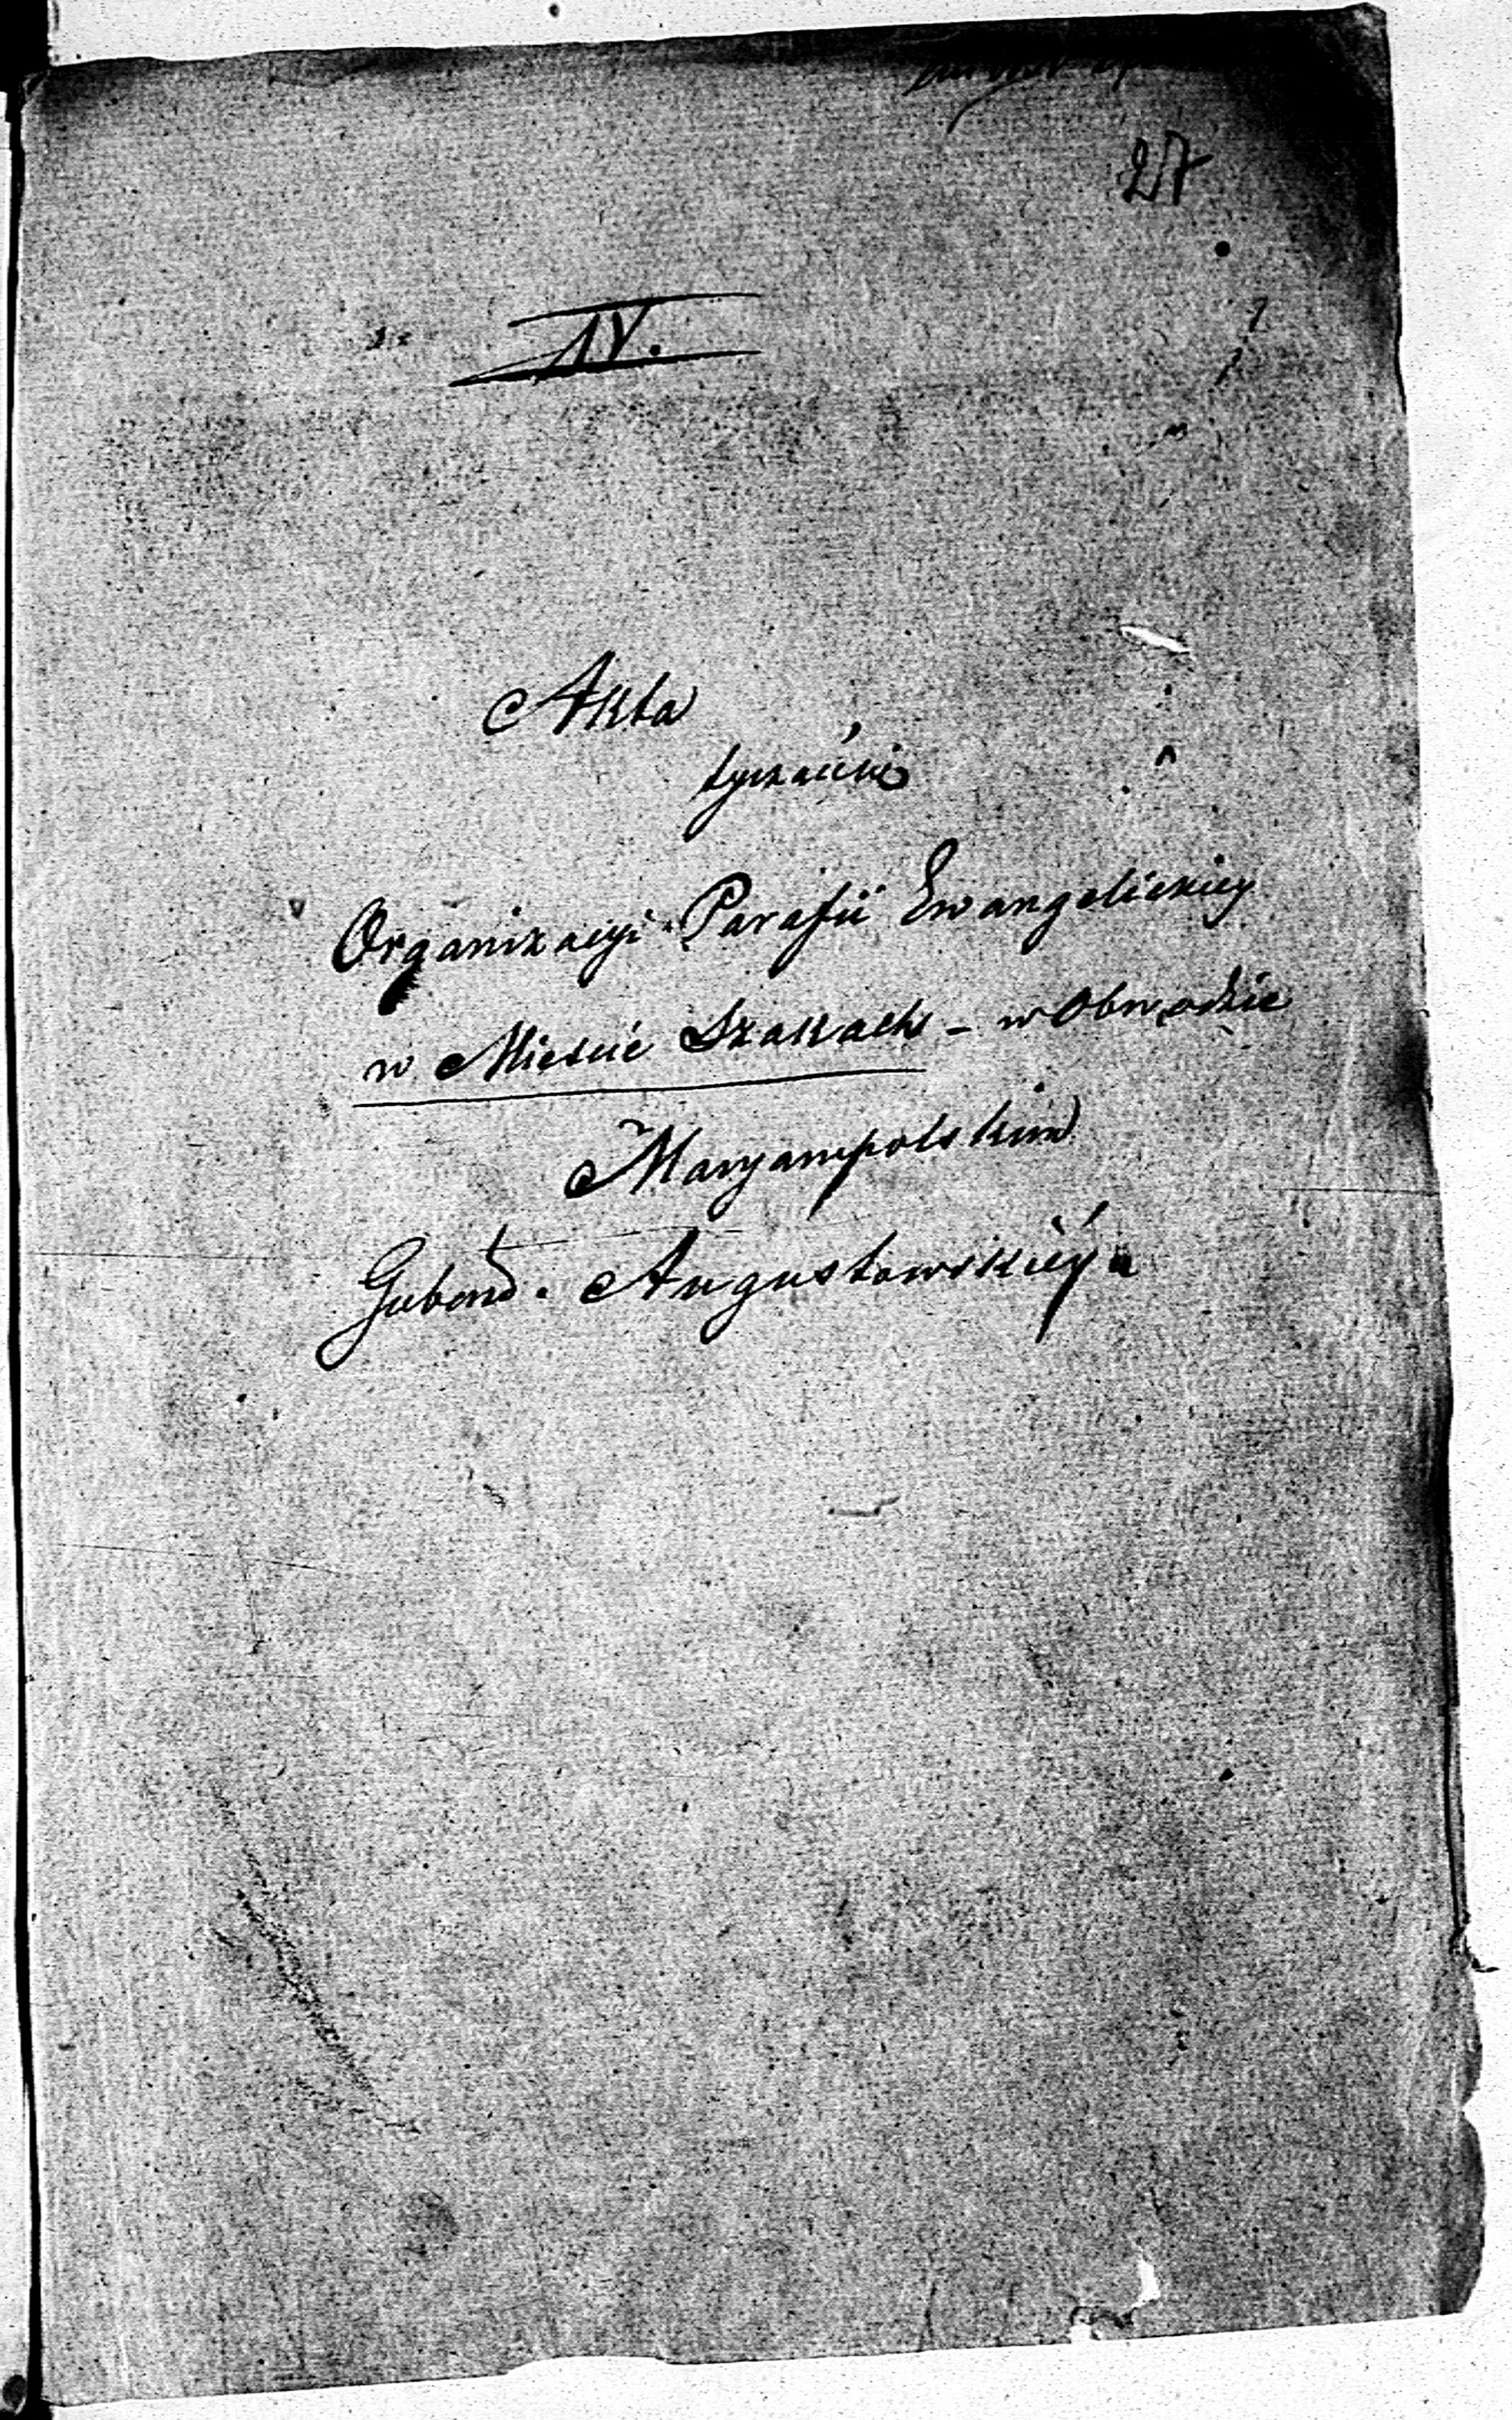 27
IV.
Akta
tyczące
Organizacyi Parafii Ewangelickiey
w Mieście Szakach - w Obwodzie
Maryampolskim
Gubernd. Augustowskiéy